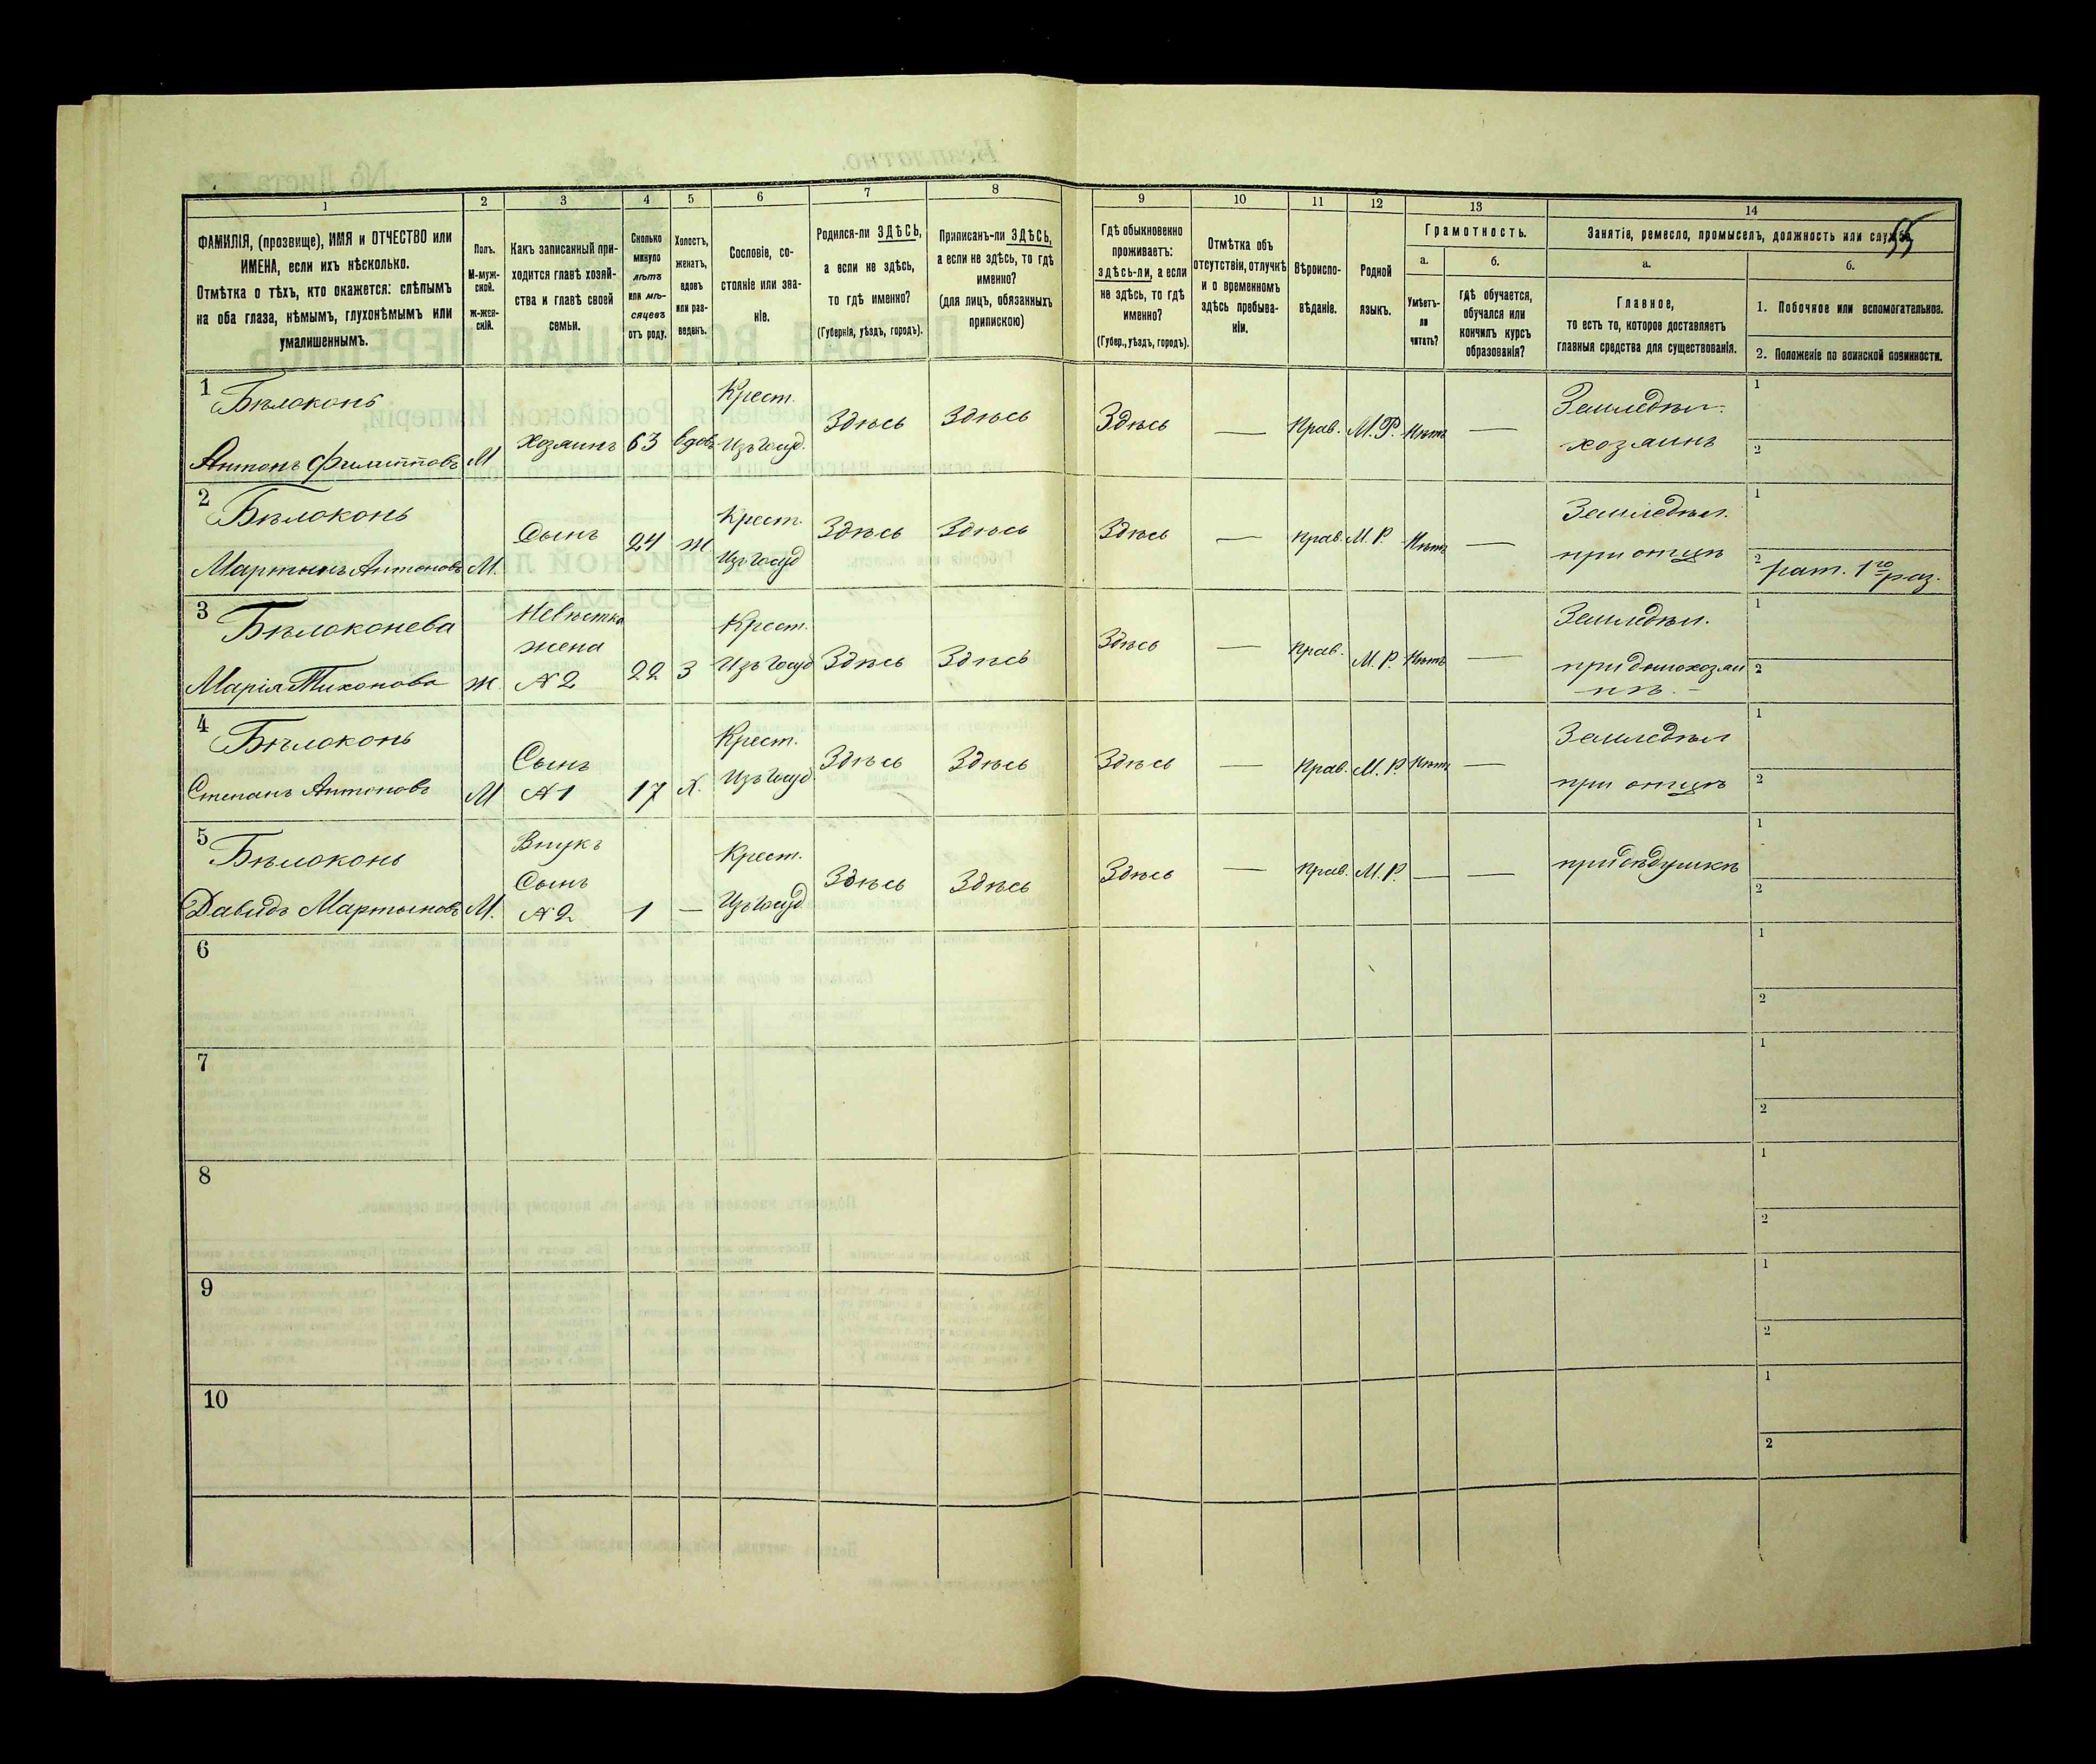 55
1 2 3 4 5 6 7 8 9 10 11 12 13 14
ФАМИЛІЯ, (прозвище), ИМЯ и ОТЧЕСТВО или
ИМЕНА, если ихъ нѣсколько.
Отмѣтка о тѣхъ, кто окажется: слѣпымъ
на оба глаза, нѣмымъ, глухонѣмымъ или
умалишеннымъ.
Полъ.
М-муж-
ской.
ж-жен-
скій.
Какъ записанный при-
ходится главѣ хозяй-
ства и главѣ своей
семьи.
Сколько
минуло
лѣтъ
или мѣ-
сяцевъ
отъ роду.
Холостъ,
женатъ,
вдовъ
или раз-
веденъ.
Сословіе, со-
стояніе или зва-
ніе.
Родился-ли ЗДѢСЬ,
а если не здѣсь,
то гдѣ именно?
(Губернія, уѣздъ, городъ).
Приписанъ-ли ЗДѢСЬ,
а если не здѣсь, то гдѣ
именно?
(для лицъ, обязанныхъ
припискою)
Гдѣ обыкновенно
проживаетъ:
здѣсь-ли, а если
не здѣсь, то гдѣ
именно?
(Губер., уѣздъ, городъ).
Отмѣтка объ
отсутствіи, отлучкѣ
и о временномъ
здѣсь пребыва-
ніи.
Вѣроиспо-
вѣданіе.
Родной
языкъ.
Грамотность.
а.
Умѣетъ-
ли
читать?
б.
гдѣ обучается,
обучался или
кончилъ курсъ
образованія?
Занятіе, ремесло, промыселъ, должность или служба.
а.
Главное,
то есть то, которое доставляетъ
главныя средства для существованія.
б.
1. Побочное или вспомогательное.
2. Положеніе по воинской повинности.
1 Бѣлоконь
Антонъ Филипповъ М хозяинъ 63 вдовъ
Крест.
Изъ Госуд.
Здѣсь Здѣсь Здѣсь — Прав. М.Р. Нѣтъ —
Земледѣл.
хозяинъ
1
2
2 Бѣлоконь
Мартынъ Антоновъ М. Сынъ 24 ж
Крест.
Изъ Госуд
Здѣсь Здѣсь Здѣсь — Прав. М.Р. Нѣтъ —
Земледѣл.
при отцѣ
1
2 рат. 1го раз.
3 Бѣлоконева
Марія Тихонова ж.
Невѣстка
жена
№ 2
22 З
Крест.
Изъ Госуд
Здѣсь Здѣсь Здѣсь — Прав. М.Р. Нѣтъ —
Земледѣл.
при домохозяи
нѣ. —
1
2
4 Бѣлоконь
Степанъ Антоновъ М
Сынъ
№ 1
17 х.
Крест.
Изъ Госуд.
Здѣсь Здѣсь Здѣсь — Прав. М.Р. Нѣтъ —
Земледѣл
при отцѣ
1
2
5 Бѣлоконь
Давидъ Мартыновъ М.
Внукъ
Сынъ
№ 2
1 —
Крест.
Изъ Госуд.
Здѣсь Здѣсь Здѣсь — Прав. М.Р. — —
при дѣдушкѣ
1
2
6
1
2
7
1
2
8
1
2
9
1
2
10
1
2